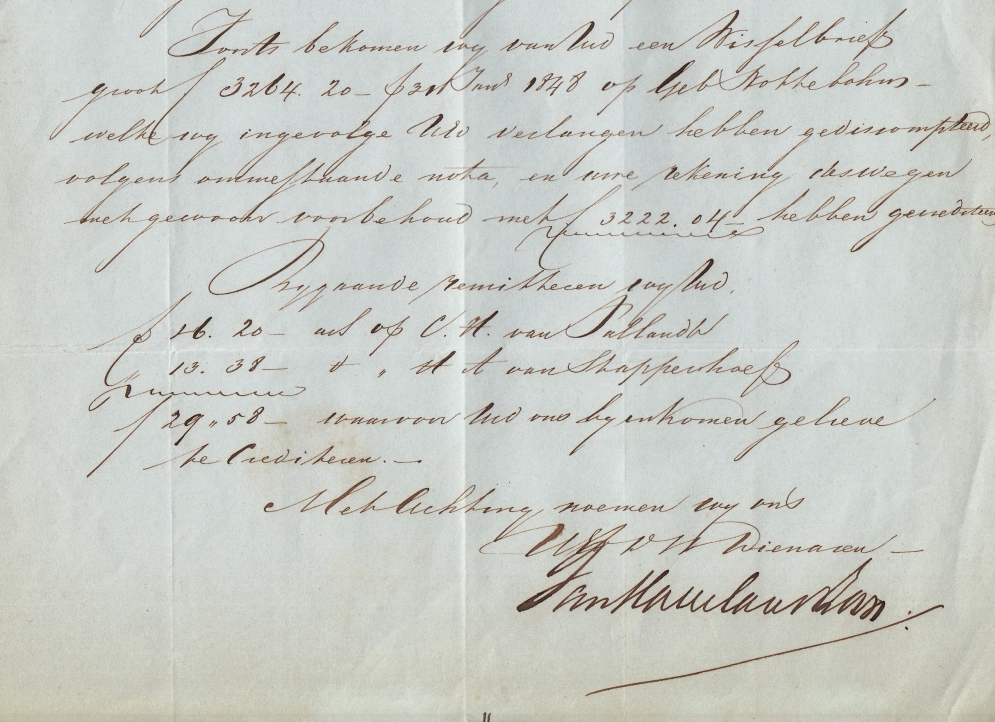 Voorts bekomen wy van Ued een Wisselbrief
groot f 3264.20 – p 31 Jan 1848 op Geb Nottebohm –
welke wy ingevolge UEd verlangen hebben gediscompteerd,
volgens ommestaande nota, en uwe rekening deswegen
met gewoon voorbehoud met f 3222.04 – hebben gecrediteerd
Bygaande remitteeren wy Ued.
f 16.20 – op C. H. van Pallandt
13.38 – " H A van Stappershoef
f 29"58 – waarvoor Ued ons by enkomen gelieve
te Crediteren. –
Met Achting noemen wy ons
D W Dienaren –